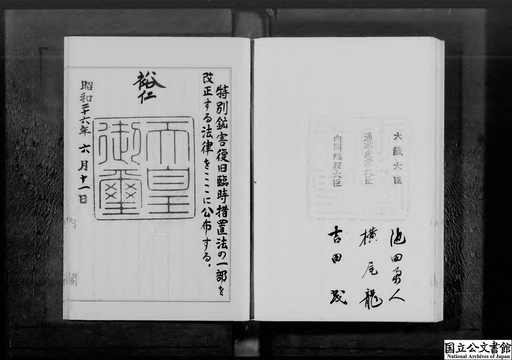 大蔵大臣 池田勇人
通商産業大臣 横尾龍
内閣総理大臣 吉田茂
特別鉱害復旧臨時措置法の一部を
改正する法律をここに公布する。
裕仁
天皇
御璽
昭和二十六年 六月十一日
内閣
国立公文書館
National Archives of Japan